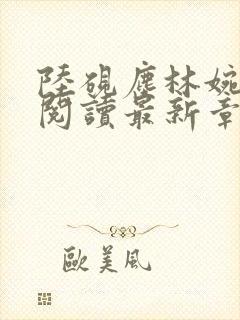 陸硯塵林婉
閱讀最新章
歐美風